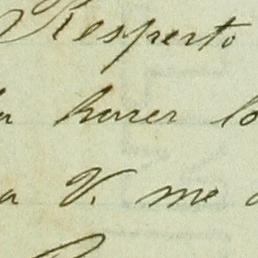 Respecto
hacer lo
a V. me